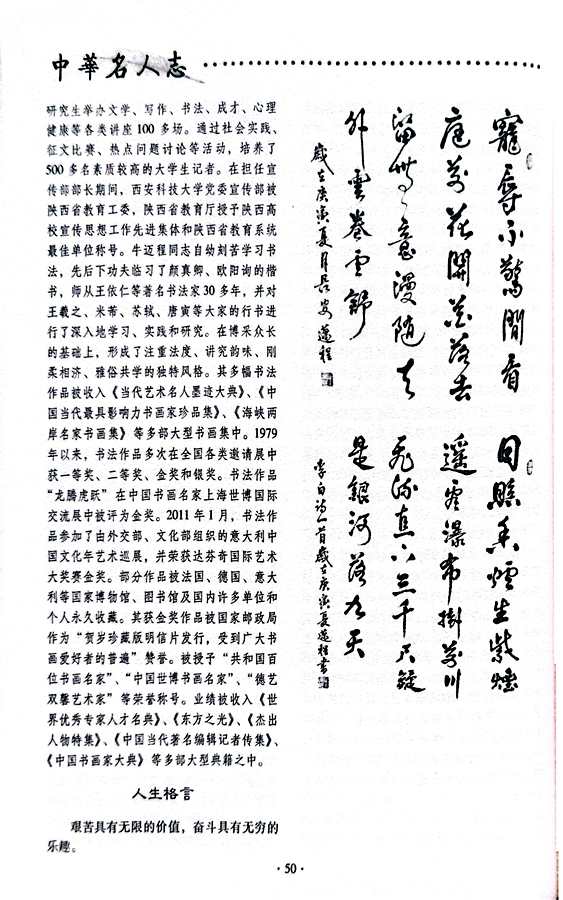 中華名人志
研究生举办文学、写作、书法、成才、心理
健康等各类讲座 100 多场。通过社会实践、
征文比赛、热点问题讨论等活动，培养了
500 多名素质较高的大学生记者。在担任宣
传部部长期间，西安科技大学党委宣传部被
陕西省教育工委，陕西省教育厅授予陕西高
校宣传思想工作先进集体和陕西省教育系统
最佳单位称号。牛迈程同志自幼刻苦学习书
法，先后下功夫临习了颜真卿、欧阳询的楷
书，师从王依仁等著名书法家 30 多年，并对
王羲之、米芾、苏轼、唐寅等大家的行书进
行了深入地学习、实践和研究。在博采众长
的基础上，形成了注重法度、讲究韵味、刚
柔相济、雅俗共学的独特风格。其多幅书法
作品被收入《当代艺术名人墨迹大典》、《中
国当代最具影响力书画家珍品集》、《海峡两
岸名家书画集》等多部大型书画集中。1979
年以来，书法作品多次在全国各类邀请展中
获一等奖、二等奖、金奖和银奖。书法作品
“龙腾虎跃”在中国书画名家上海世博国际
交流展中被评为金奖。2011 年 1 月，书法作
品参加了由外交部、文化部组织的意大利中
国文化年艺术巡展，并荣获达芬奇国际艺术
大奖赛金奖。部分作品被法国、德国、意大
利等国家博物馆、图书馆及国内许多单位和
个人永久收藏。其获金奖作品被国家邮政局
作为“贺岁珍藏版明信片发行，受到广大书
画爱好者的普遍”赞誉。被授予“共和国百
位书画名家”、“中国世博书画名家”、“德艺
双馨艺术家”等荣誉称号。业绩被收入《世
界优秀专家人才名典》、《东方之光》、《杰出
人物特集》、《中国当代著名编辑记者传集》、
《中国书画家大典》等多部大型典籍之中。
人生格言
艰苦具有无限的价值，奋斗具有无穷的
乐趣。
寵辱不驚閒看
庭前花開花落去
留無意漫隨天
外雲卷雲舒
歲在庚寅夏月長安邁程
日照香爐生紫煙
遥看瀑布掛前川
飛流直下三千尺疑
是銀河落九天
李白詩一首歲在庚寅夏邁程書
·50·